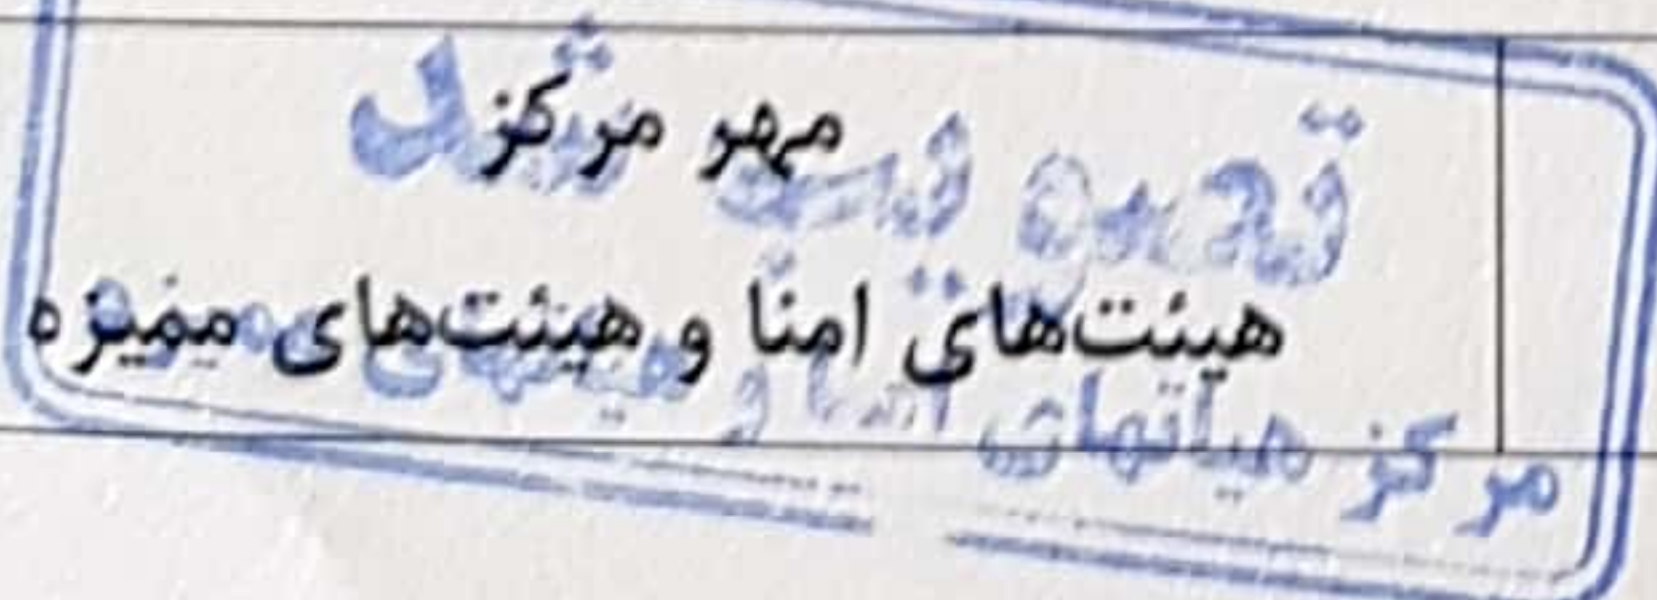 مهر مرکز
هیئت‌های امنا و هیئت‌های ممیزه
مرکز هیاتهای امنا و هیئتهای ممیزه